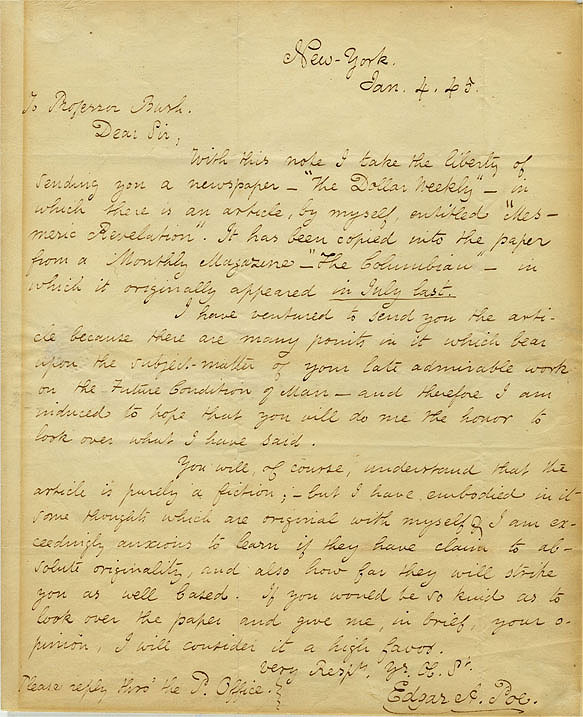 New-York.
Jan. 4. 45.
To Professor Bush.
Dear Sir,
With this note I take the liberty of
sending you a newspaper — "The Dollar Weekly" — in
which there is an article, by myself, entitled "Mes-
meric Revelation". It has been copied into the paper
from a Monthly Magazine — "The Columbian" — in
which it originally appeared in July last.
I have ventured to send you the arti-
cle because there are many points in it which bear
upon the subject-matter of your late admirable work
on the Future Condition of Man — and therefore I am
induced to hope that you will do me the honor to
look over what I have said.
You will, of course, understand that the
article is purely a fiction; — but I have embodied in it
some thoughts which are original with myself & I am ex-
ceedingly anxious to learn if they have claim to ab-
solute originality, and also how far they will strike
you as well based. If you would be so kind as to
look over the paper and give me, in brief, your o-
pinion, I will consider it a high favor.
Very Respy. Yr. Ob. St.
Please reply thro' the P. Office.
Edgar A. Poe.